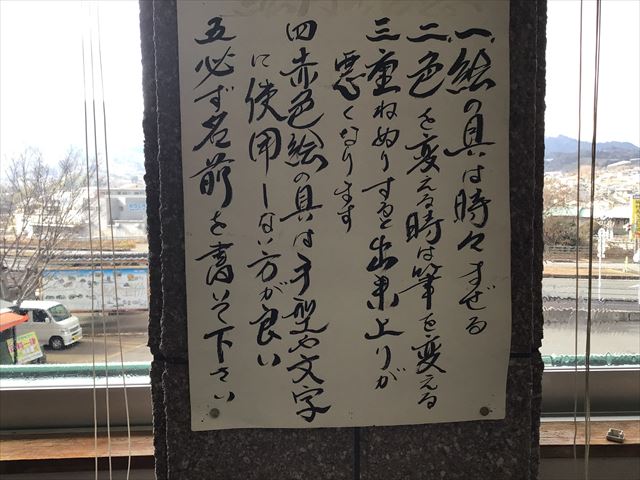 一、絵の具は時々まぜる
二、色を変える時は筆を変える
三、重ねぬりすると出来上りが
悪くなります
四、赤色絵の具は手型や文字
に使用しない方が良い
五、必ず名前を書いて下さい